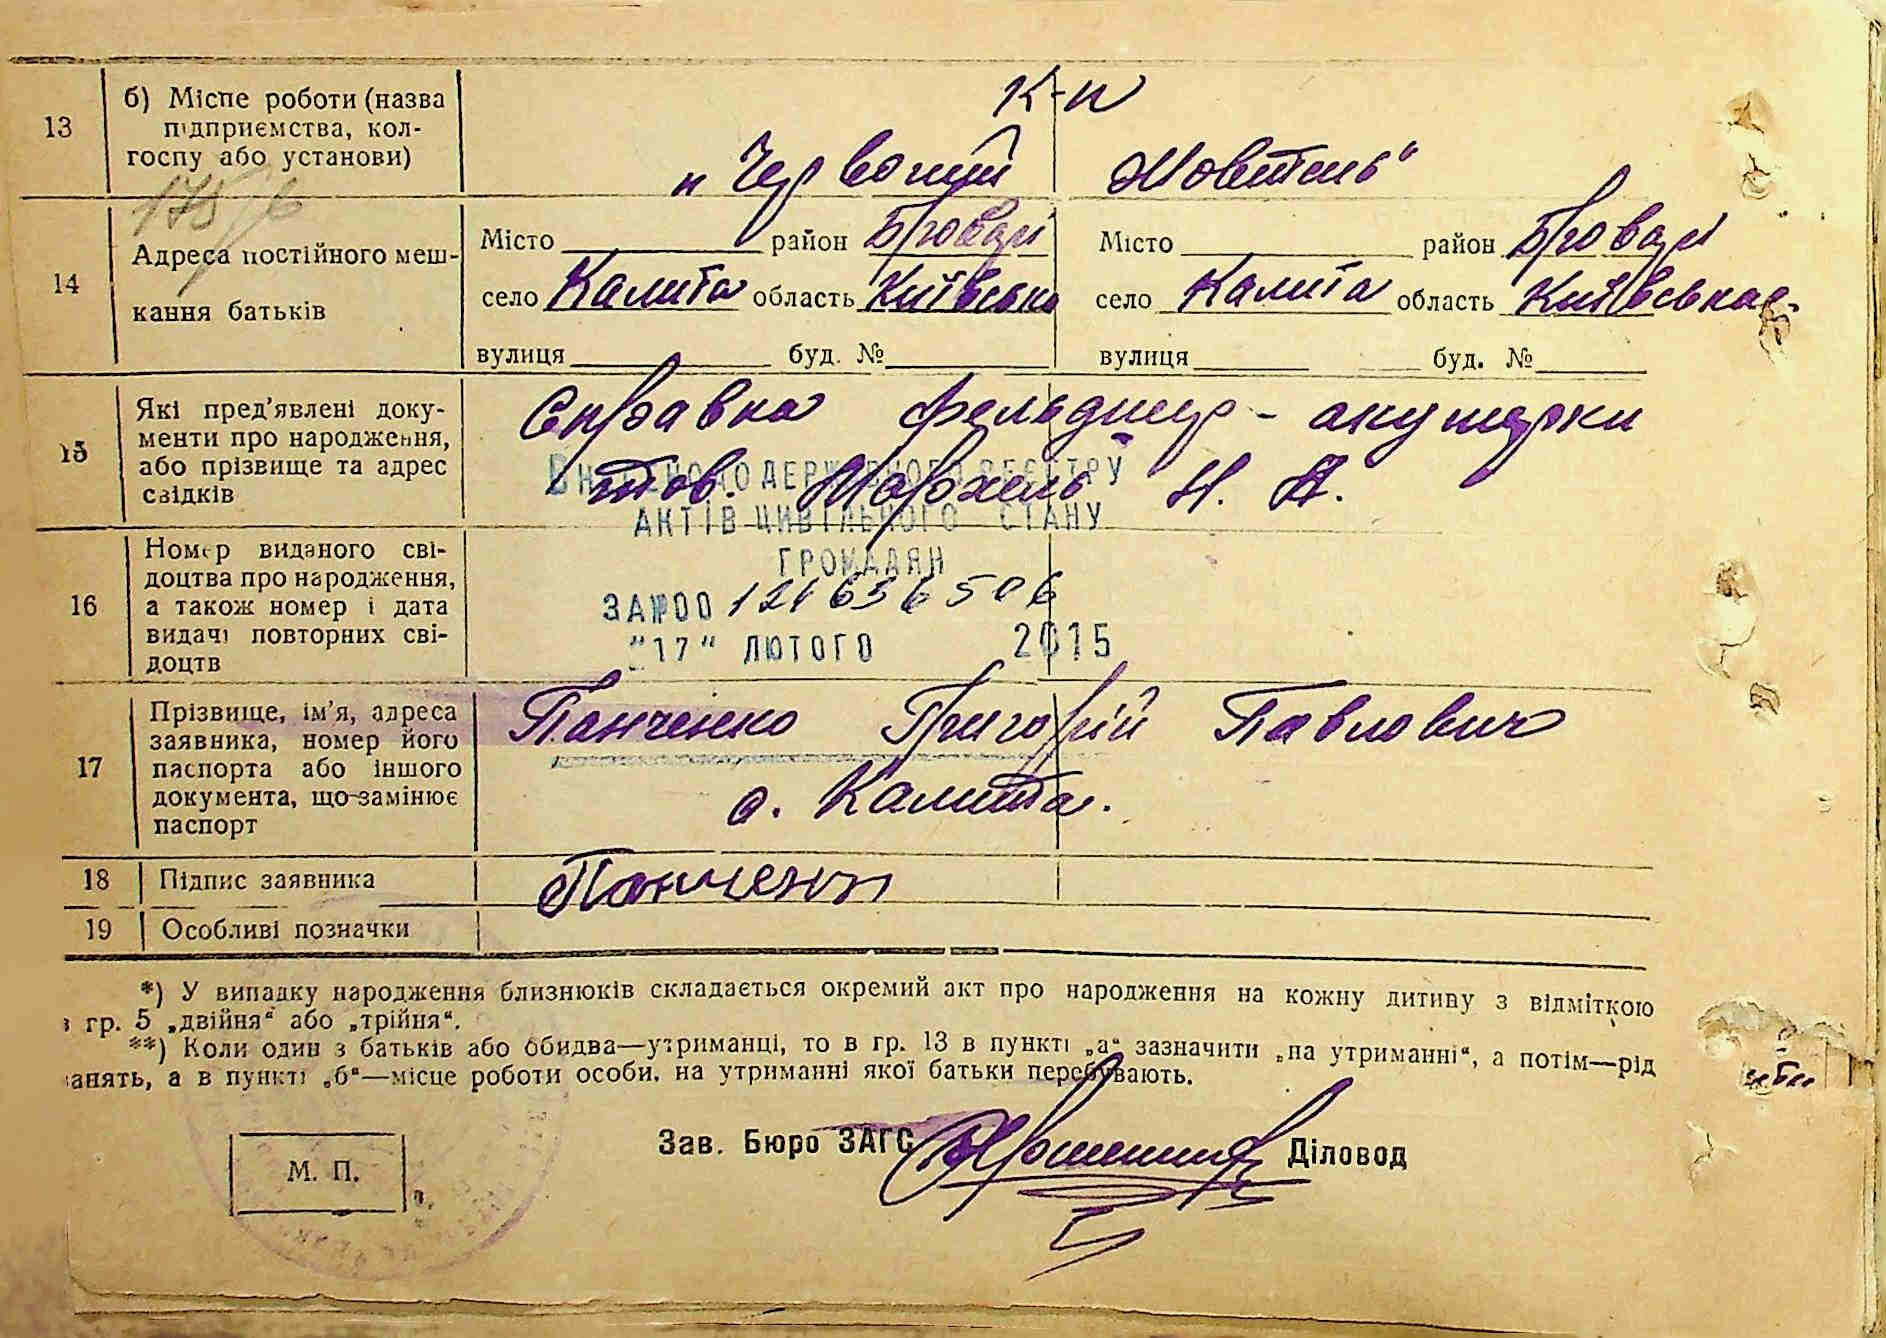 13
б) Місце роботи (назва
підприємства, кол-
госпу або установи)
К-п
„Червоний Жовтень“
14
Адреса постійного меш-
кання батьків
Місто район Бровари
село Калита область Київська
вулиця буд. №
Місто район Бровари
село Калита область Київська
вулиця буд. №
15
Які пред'явлені доку-
менти про народження,
або прізвище та адрес
свідків
Справка фельдшер-акушерки
тов. Н. А.
ВНЕСЕНО ДО ДЕРЖАВНОГО РЕЄСТРУ
АКТІВ ЦИВІЛЬНОГО СТАНУ
ГРОМАДЯН
ЗА №00121636506
"17" ЛЮТОГО 2015
16
Номер виданого сві-
доцтва про народження,
а також номер і дата
видачі повторних сві-
доцтв
17
Прізвище, ім'я, адреса
заявника, номер його
паспорта або іншого
документа, що замінює
паспорт
Панченко Григорій Павлович
с. Калита.
18
Підпис заявника
Панченко
19
Особливі позначки
*) У випадку народження близнюків складається окремий акт про народження на кожну дитину з відміткою
в гр. 5 „двійня“ або „трійня“.
**) Коли один з батьків або обидва—утриманці, то в гр. 13 в пункті „а“ зазначити „на утриманні“, а потім—рід
занять, а в пункті „б“—місце роботи особи, на утриманні якої батьки перебувають.
М. П.
Зав. Бюро ЗАГС Діловод